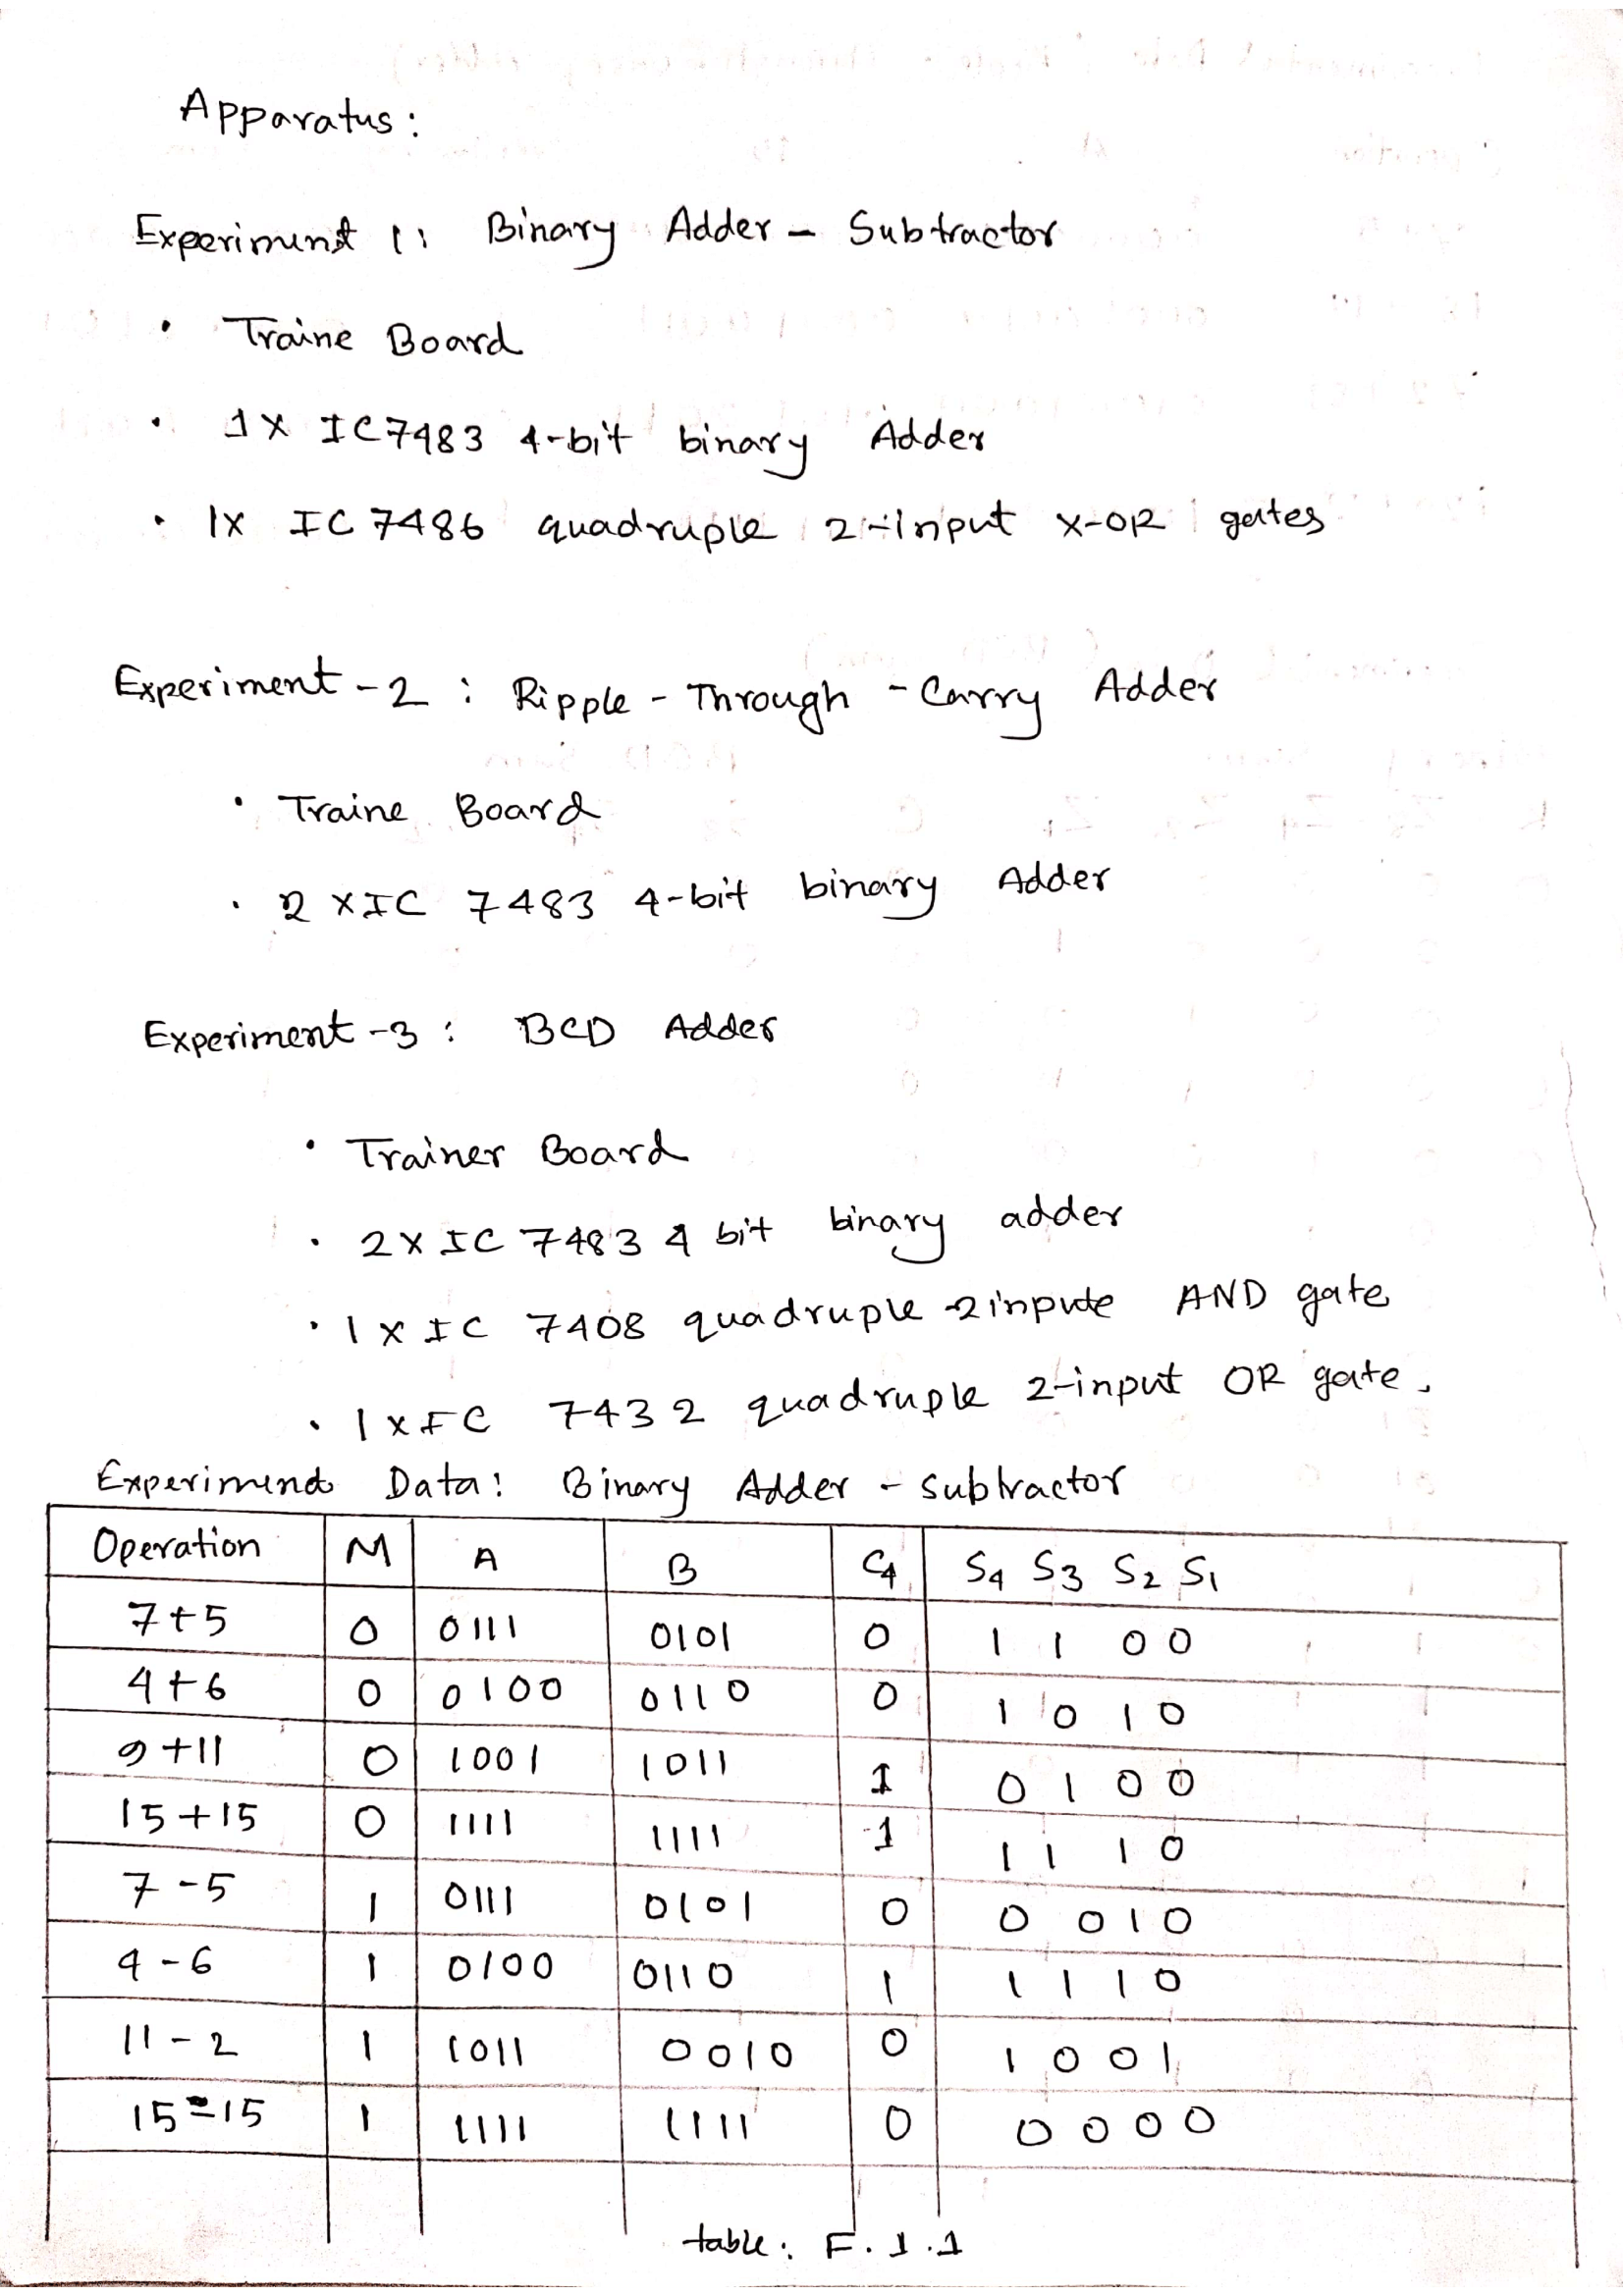 Apparatus:
Experimend 1: Binary Adder - Subtractor
• Traine Board
• 1X IC7483 4-bit binary Adder
• 1X IC 7486 quadruple 2-input X-OR gates
Experiment - 2 : Ripple - Through - Carry Adder
• Traine Board
• 2 XIC 7483 4-bit binary Adder
Experiment -3 : BCD Adder
• Trainer Board
• 2X IC 7483 4 bit binary adder
• 1 X IC 7408 quadruple 2inpute AND gate
• 1 x IC 7432 quadruple 2-input OR gate.
Experimend Data: Binary Adder - subtractor
Operation M A B C4 S4 S3 S2 S1
7+5 0 0111 0101 0 1 1 0 0
4+6 0 0100 0110 0 1 0 1 0
9+11 0 1001 1011 1 0 1 0 0
15+15 0 1111 1111 1 1 1 1 0
7-5 1 0111 0101 0 0 0 1 0
4-6 1 0100 0110 1 1 1 1 0
11-2 1 1011 0010 0 1 0 0 1
15-15 1 1111 1111 0 0 0 0 0
table: F.1.1